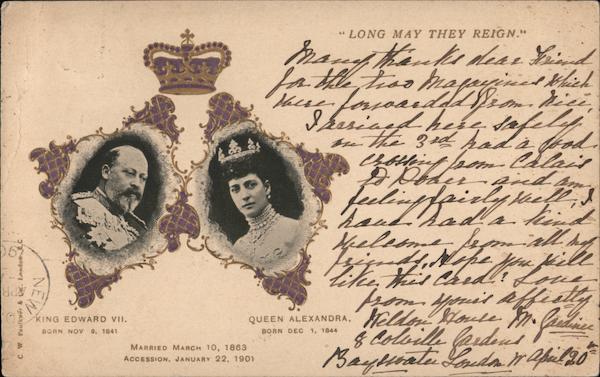 "LONG MAY THEY REIGN."
Many thanks dear Friend
for the two Magazines which
were forwarded from Nice
I arrived here safely
on the 3rd had a good
crossing from Calais
to Dover and am
feeling fairly well, I
have had a kind
welcome from all my
friends. Hope you will
like this card! Love
from yours affectly
M. Gardiner
Weldon House
8 Colville Gardens
Bayswater London W April 20
KING EDWARD VII.
BORN NOV 9, 1841
QUEEN ALEXANDRA.
BORN DEC 1, 1844
MARRIED MARCH 10, 1863
ACCESSION, JANUARY 22, 1901
C. W. Faulkner & Co. London, E.C.
NEW